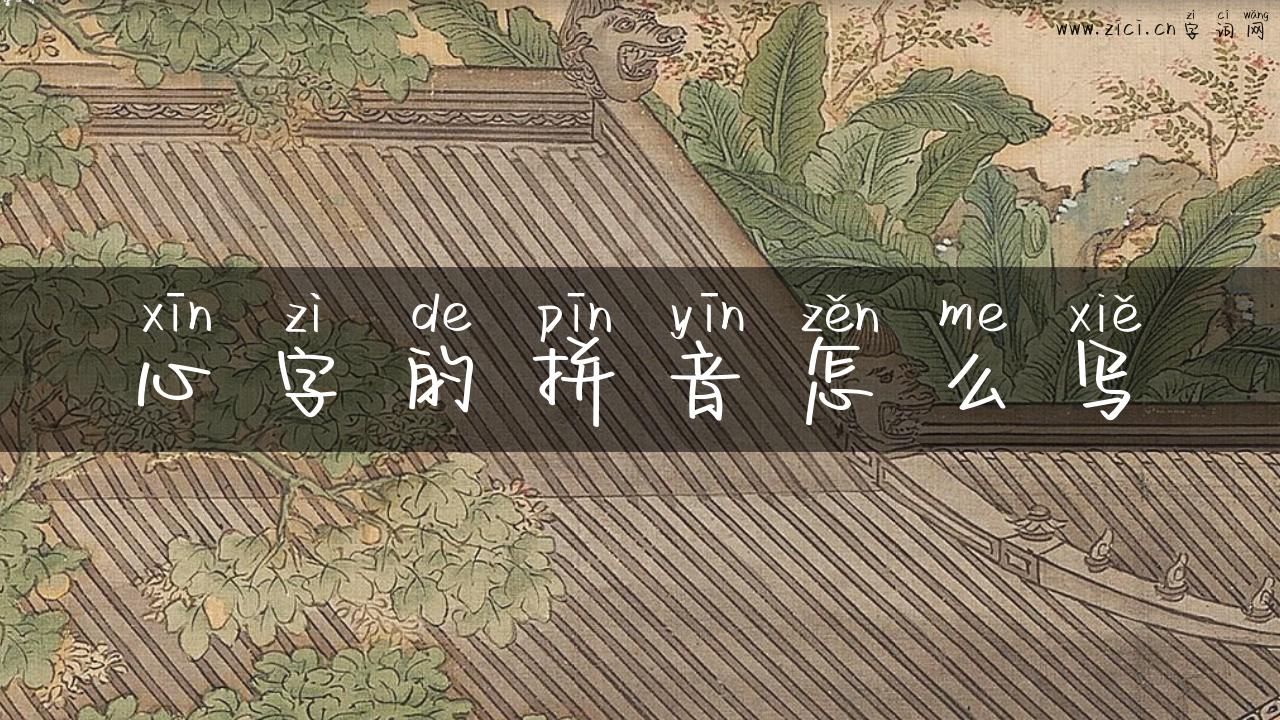 zì cí wǎng
www.zici.cn 字 词 网
xīn zì de pīn yīn zěn me xiě
心 字 的 拼 音 怎 么 写